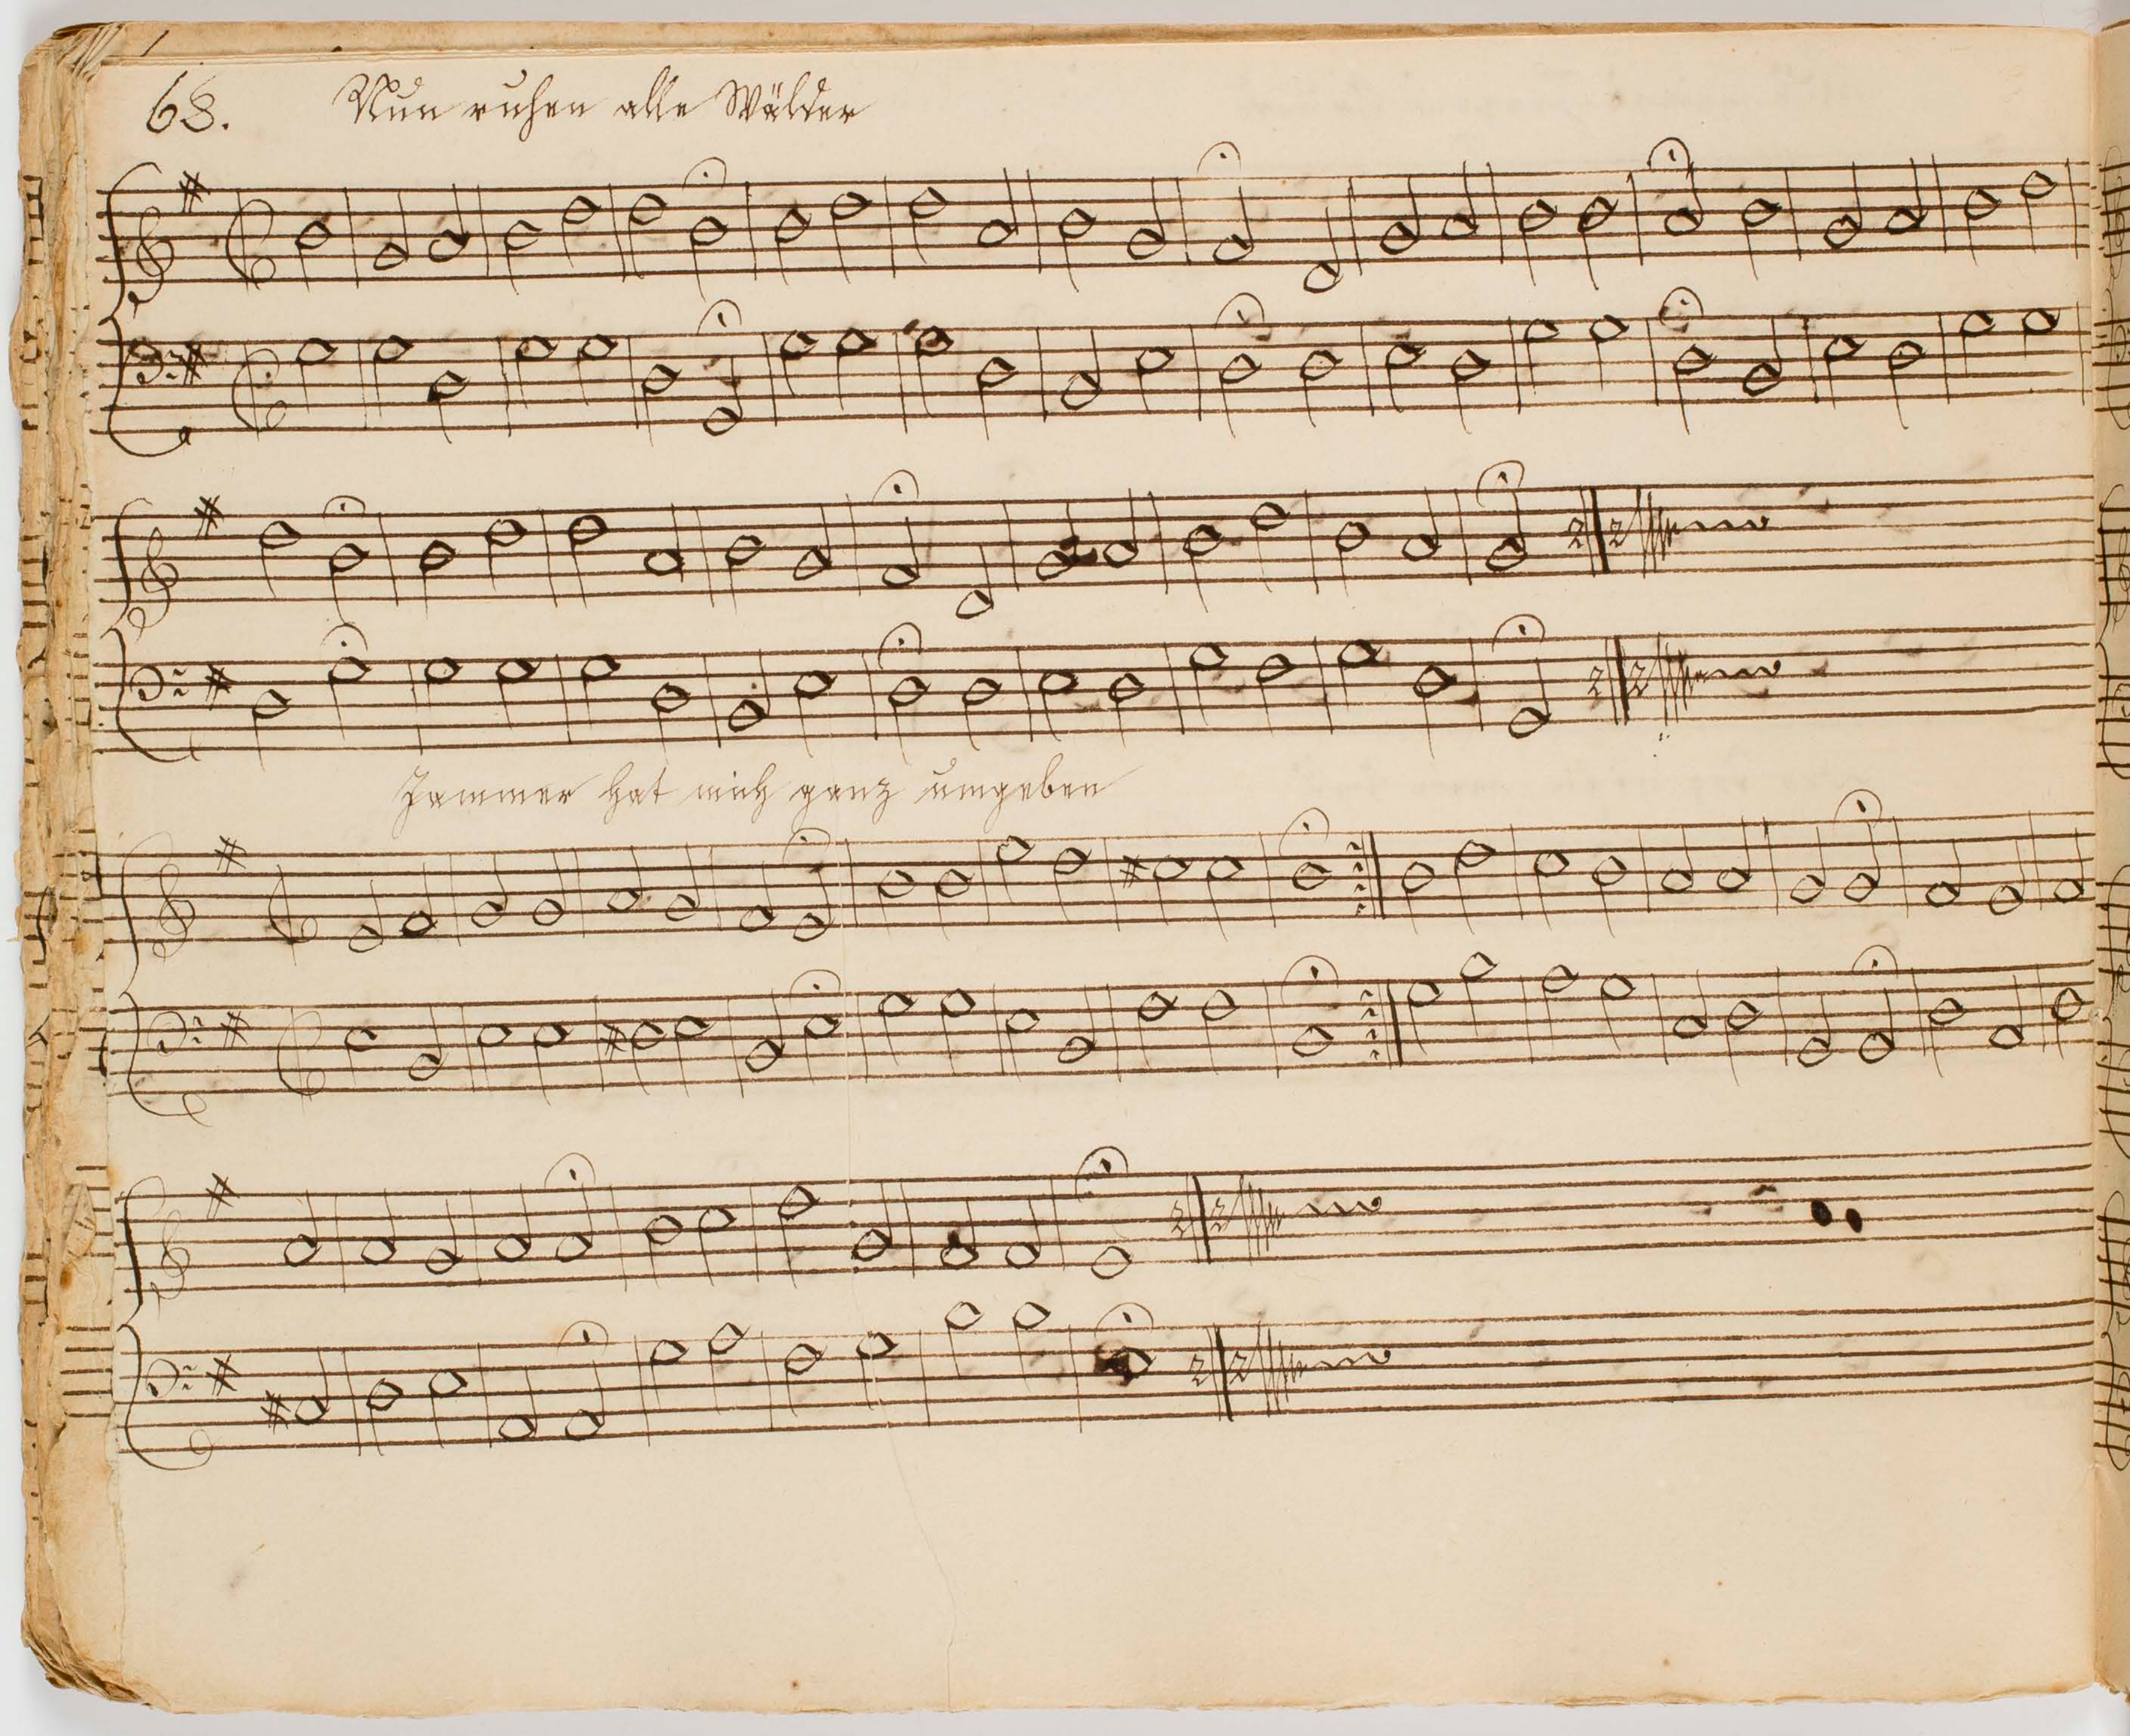 68. Nun ruhen alle Wälder
Jammer hat mich ganz umgeben